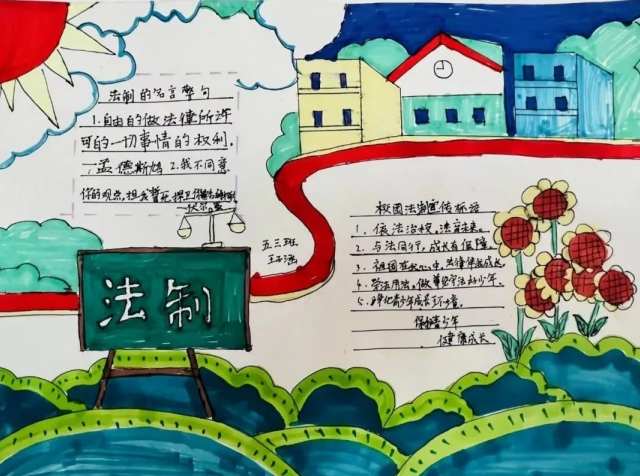 法制的名言警句
1.自由的做法律所许
可的一切事情的权利.
孟德斯鸠 2.我不同意
你的观点,但我誓死捍卫你
伏尔泰
五三班
法制
校园法制宣传标语
1、依法治校,
2、与法同行,成长有保障.
3、祖国在我心中,法律伴我成长
4、学法用法,做 守法好少年.
5、净化青少年成长环境.
保护青少年
健康成长